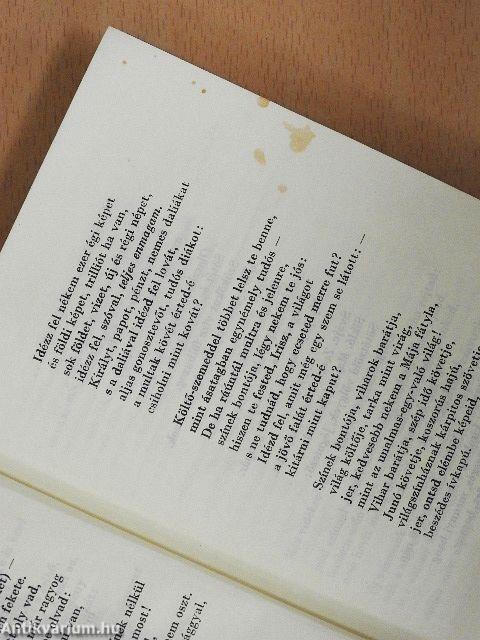 Idézz fel nékem ezer égi képet
és földi képet, trilliót ha van,
sok földet, vizet, új és régi népet,
idézz fel, szóval, teljes enmagam.
Királyt, papot, pénzt, nemes daliákat
s a daliával idézd fel lovát,
aljas gonosztevőt, tudós diákot:
a multak kövét érted-é
csiholni mint kovát?
Költő-szemeddel többet lelsz te benne,
mint ásatagban egynémely tudós —
színek bontója, légy nekem te jós:
De ha ráúntál multra és jelenre,
hiszen te fested, Írisz, a világot
s ne tudnád, hogy ecseted merre fut?
Idézd fel, amit még egy szem se látott; —
a jövő falát érted-é
kitárni mint kaput?
Színek bontója, viharok barátja,
világ költője, tarka mint virág,
jer, kedvesebb nekem a Mája fátyla,
mint az unalmas-egy-való világ!
Vihar barátja, szép idő követje,
Junó követje, koszorús hajú,
világszínháznak kárpitos szövetje
jer, ontsd elémbe képeid,
beszédes ívkapú.
fekete.
vad,
ragyog
nélkül
most!
nem oszt.
Antikvarium.hu